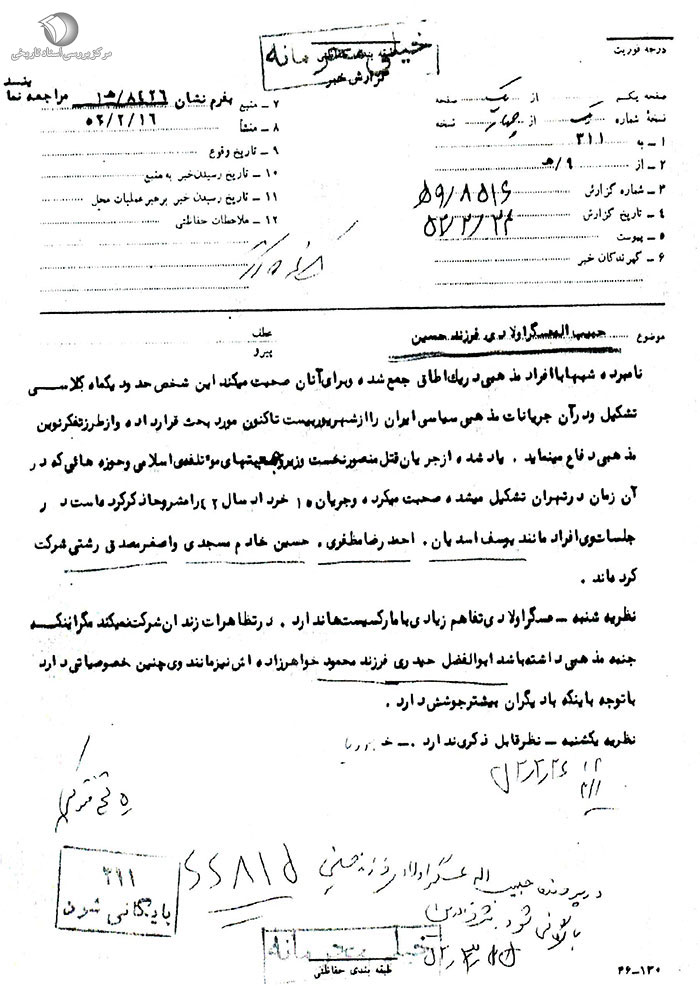 مرکز بررسی اسناد تاریخی
درجه فوریت
خیلی محرمانه
طبقه بندی حفاظتی
گزارش خبر
صفحه یکم از یک صفحه
نسخهٔ شماره یک از چهار نسخه
۱ـ به ۳۱۱
۲ـ از ۹/هـ
۳ـ شماره گزارش
۴ـ تاریخ گزارش
۵ـ پیوست
۶ـ گیرندگان خبر
بنسد
۷ـ منبع بفرم نشان ۸۴۲۶/هـ۱ مراجعه نما
۸ـ منشأ ۵۲/۲/۱۶
۹ـ تاریخ وقوع
۱۰ـ تاریخ رسیدن خبر به منبع
۱۱ـ تاریخ رسیدن خبر برهبر عملیات محل
۱۲ـ ملاحظات حفاظتی
موضوع حبیب اله عسگراولادی فرزند حسین
عطف
پیرو
نامبرده شبها با افراد مذهبی در یک اطاق جمع شده و برای آنان صحبت میکند این شخص حدود یکماه کلاسی
تشکیل و در آن جریانات مذهبی سیاسی ایران را از شهریور بیست تاکنون مورد بحث قرار داده و از طرز تفکر نوین
مذهبی دفاع مینماید . یاد شده از جریان قتل منصور نخست وزیر و هیئتهای موتلفه‌ی اسلامی و حوزه هائی که در
آن زمان در تهران تشکیل میشده صحبت میکرده و جریان ۱۵ خرداد سال ۴۲ را مشروحا ذکر کرده است در
جلسات وی افراد مانند یوسف اسدیان . احمد رضا مظفری . حسین خادم مسجدی و اصغر مصدقی رشتی شرکت
کرده‌اند .
نظریه شنبه ـ عسگراولادی تفاهم زیادی با مارکسیست‌ها ندارد . در تظاهرات زندان شرکت نمیکند مگر اینکه
جنبه مذهبی داشته باشد ابوالفضل حیدری فرزند محمود خواهرزاده اش نیز مانند وی چنین خصوصیاتی دارد
با توجه با اینکه با دیگران بیشتر جوشش دارد .
نظریه یکشنبه ـ نظر قابل ذکری ندارد .ـ
در پرونده حبیب اله عسگراولادی فرزند حسین
بایگانی شود
۳۱۱
بایگانی شود
خیلی محرمانه
طبقه بندی حفاظتی
۴۶ـ۱۳۰